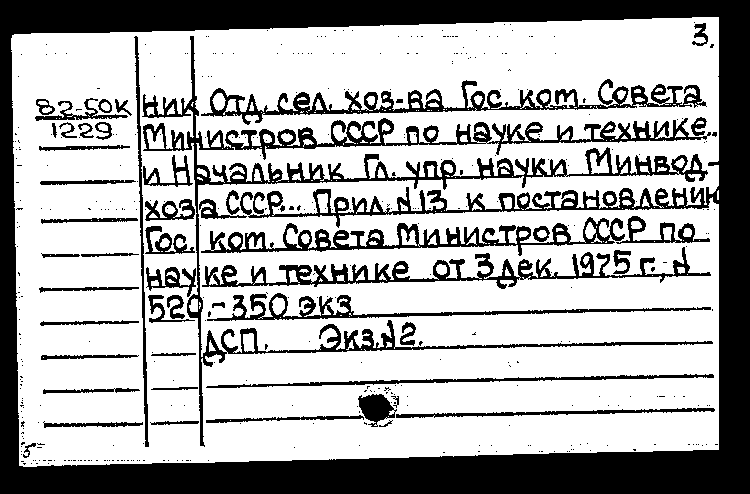 3.
82-50К
1229
ник Отд. сел. хоз-ва Гос. ком. Совета
Министров СССР по науке и технике..
и Начальник Гл. упр. науки Минвод-
хоза СССР... Прил. №13 к постановлению
Гос. ком. Совета Министров СССР по
науке и технике от 3 дек. 1975 г., №
520.-350 экз.
ДСП. Экз.№2.